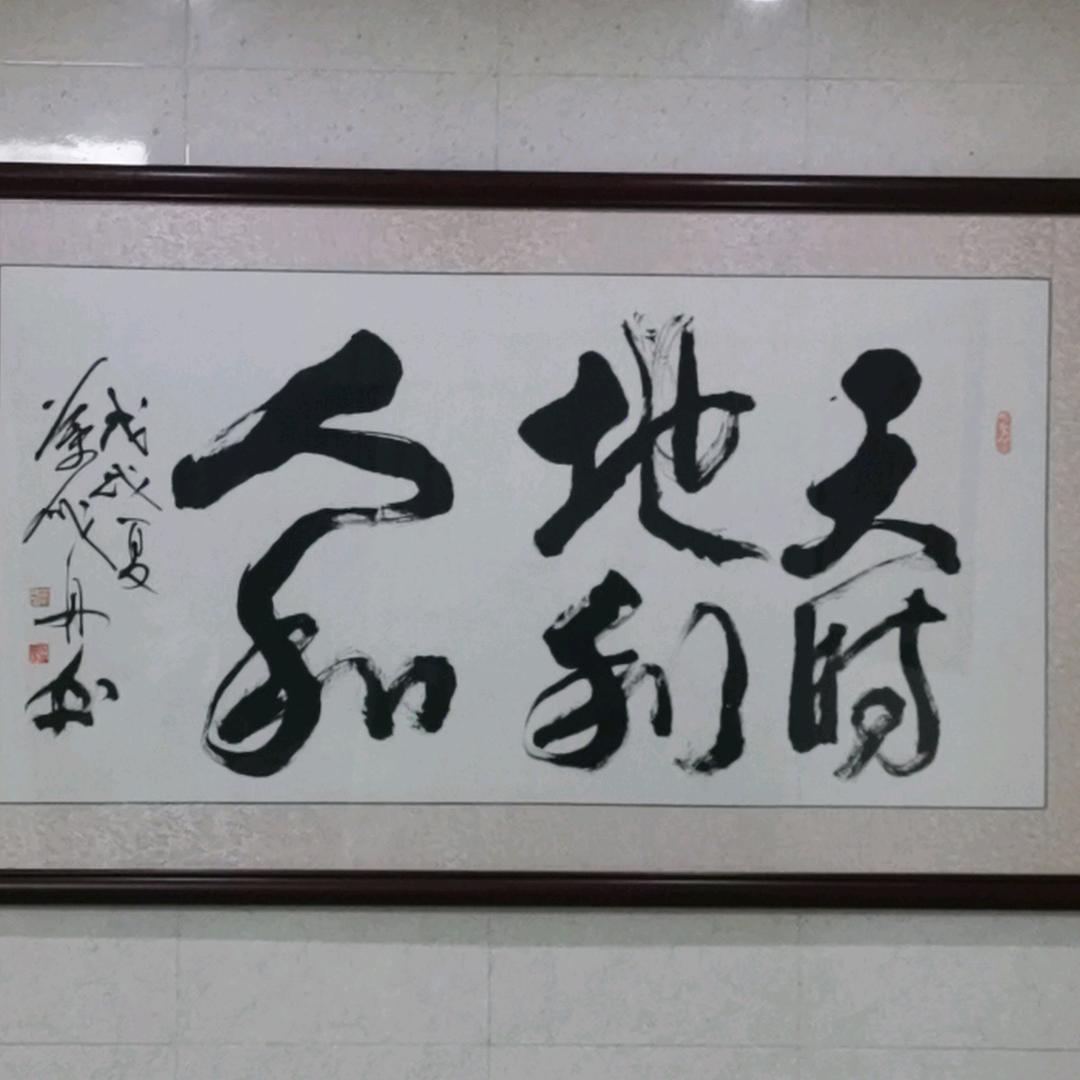 天时
地利
人和
戊戌夏